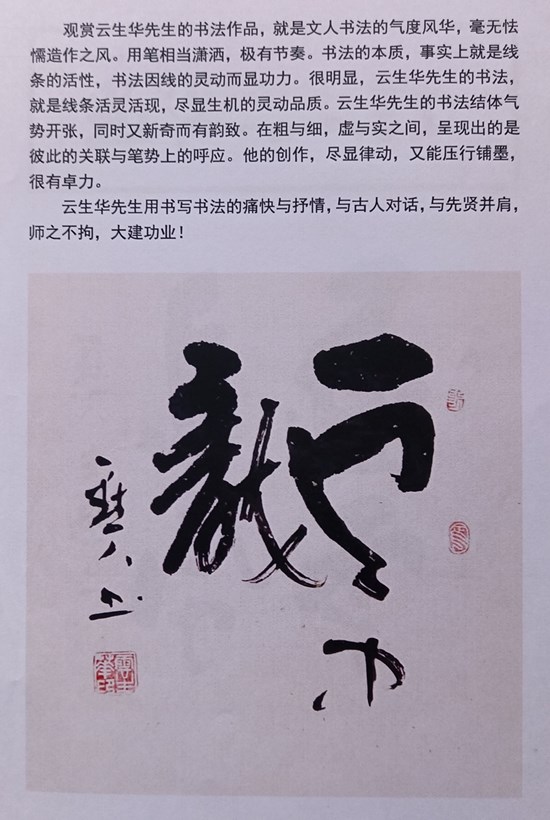 观赏云生华先生的书法作品，就是文人书法的气度风华，毫无怯
懦造作之风。用笔相当潇洒，极有节奏。书法的本质，事实上就是线
条的活性，书法因线的灵动而显功力。很明显，云生华先生的书法，
就是线条活灵活现，尽显生机的灵动品质。云生华先生的书法结体气
势开张，同时又新奇而有韵致。在粗与细，虚与实之间，呈现出的是
彼此的关联与笔势上的呼应。他的创作，尽显律动，又能压行铺墨，
很有卓力。
云生华先生用书写书法的痛快与抒情，与古人对话，与先贤并肩，
师之不拘，大建功业！